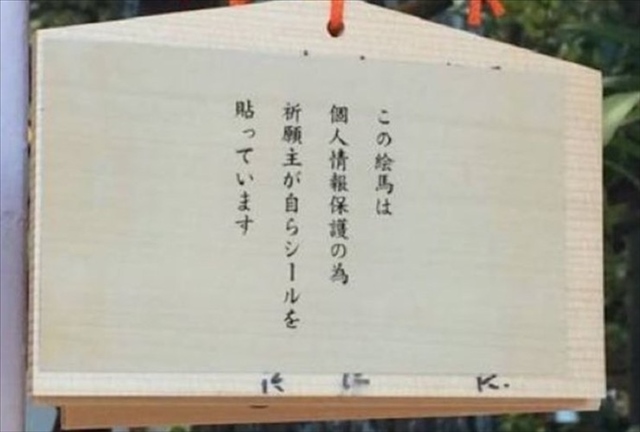 この絵馬は
個人情報保護の為
祈願主が自らシールを
貼っています